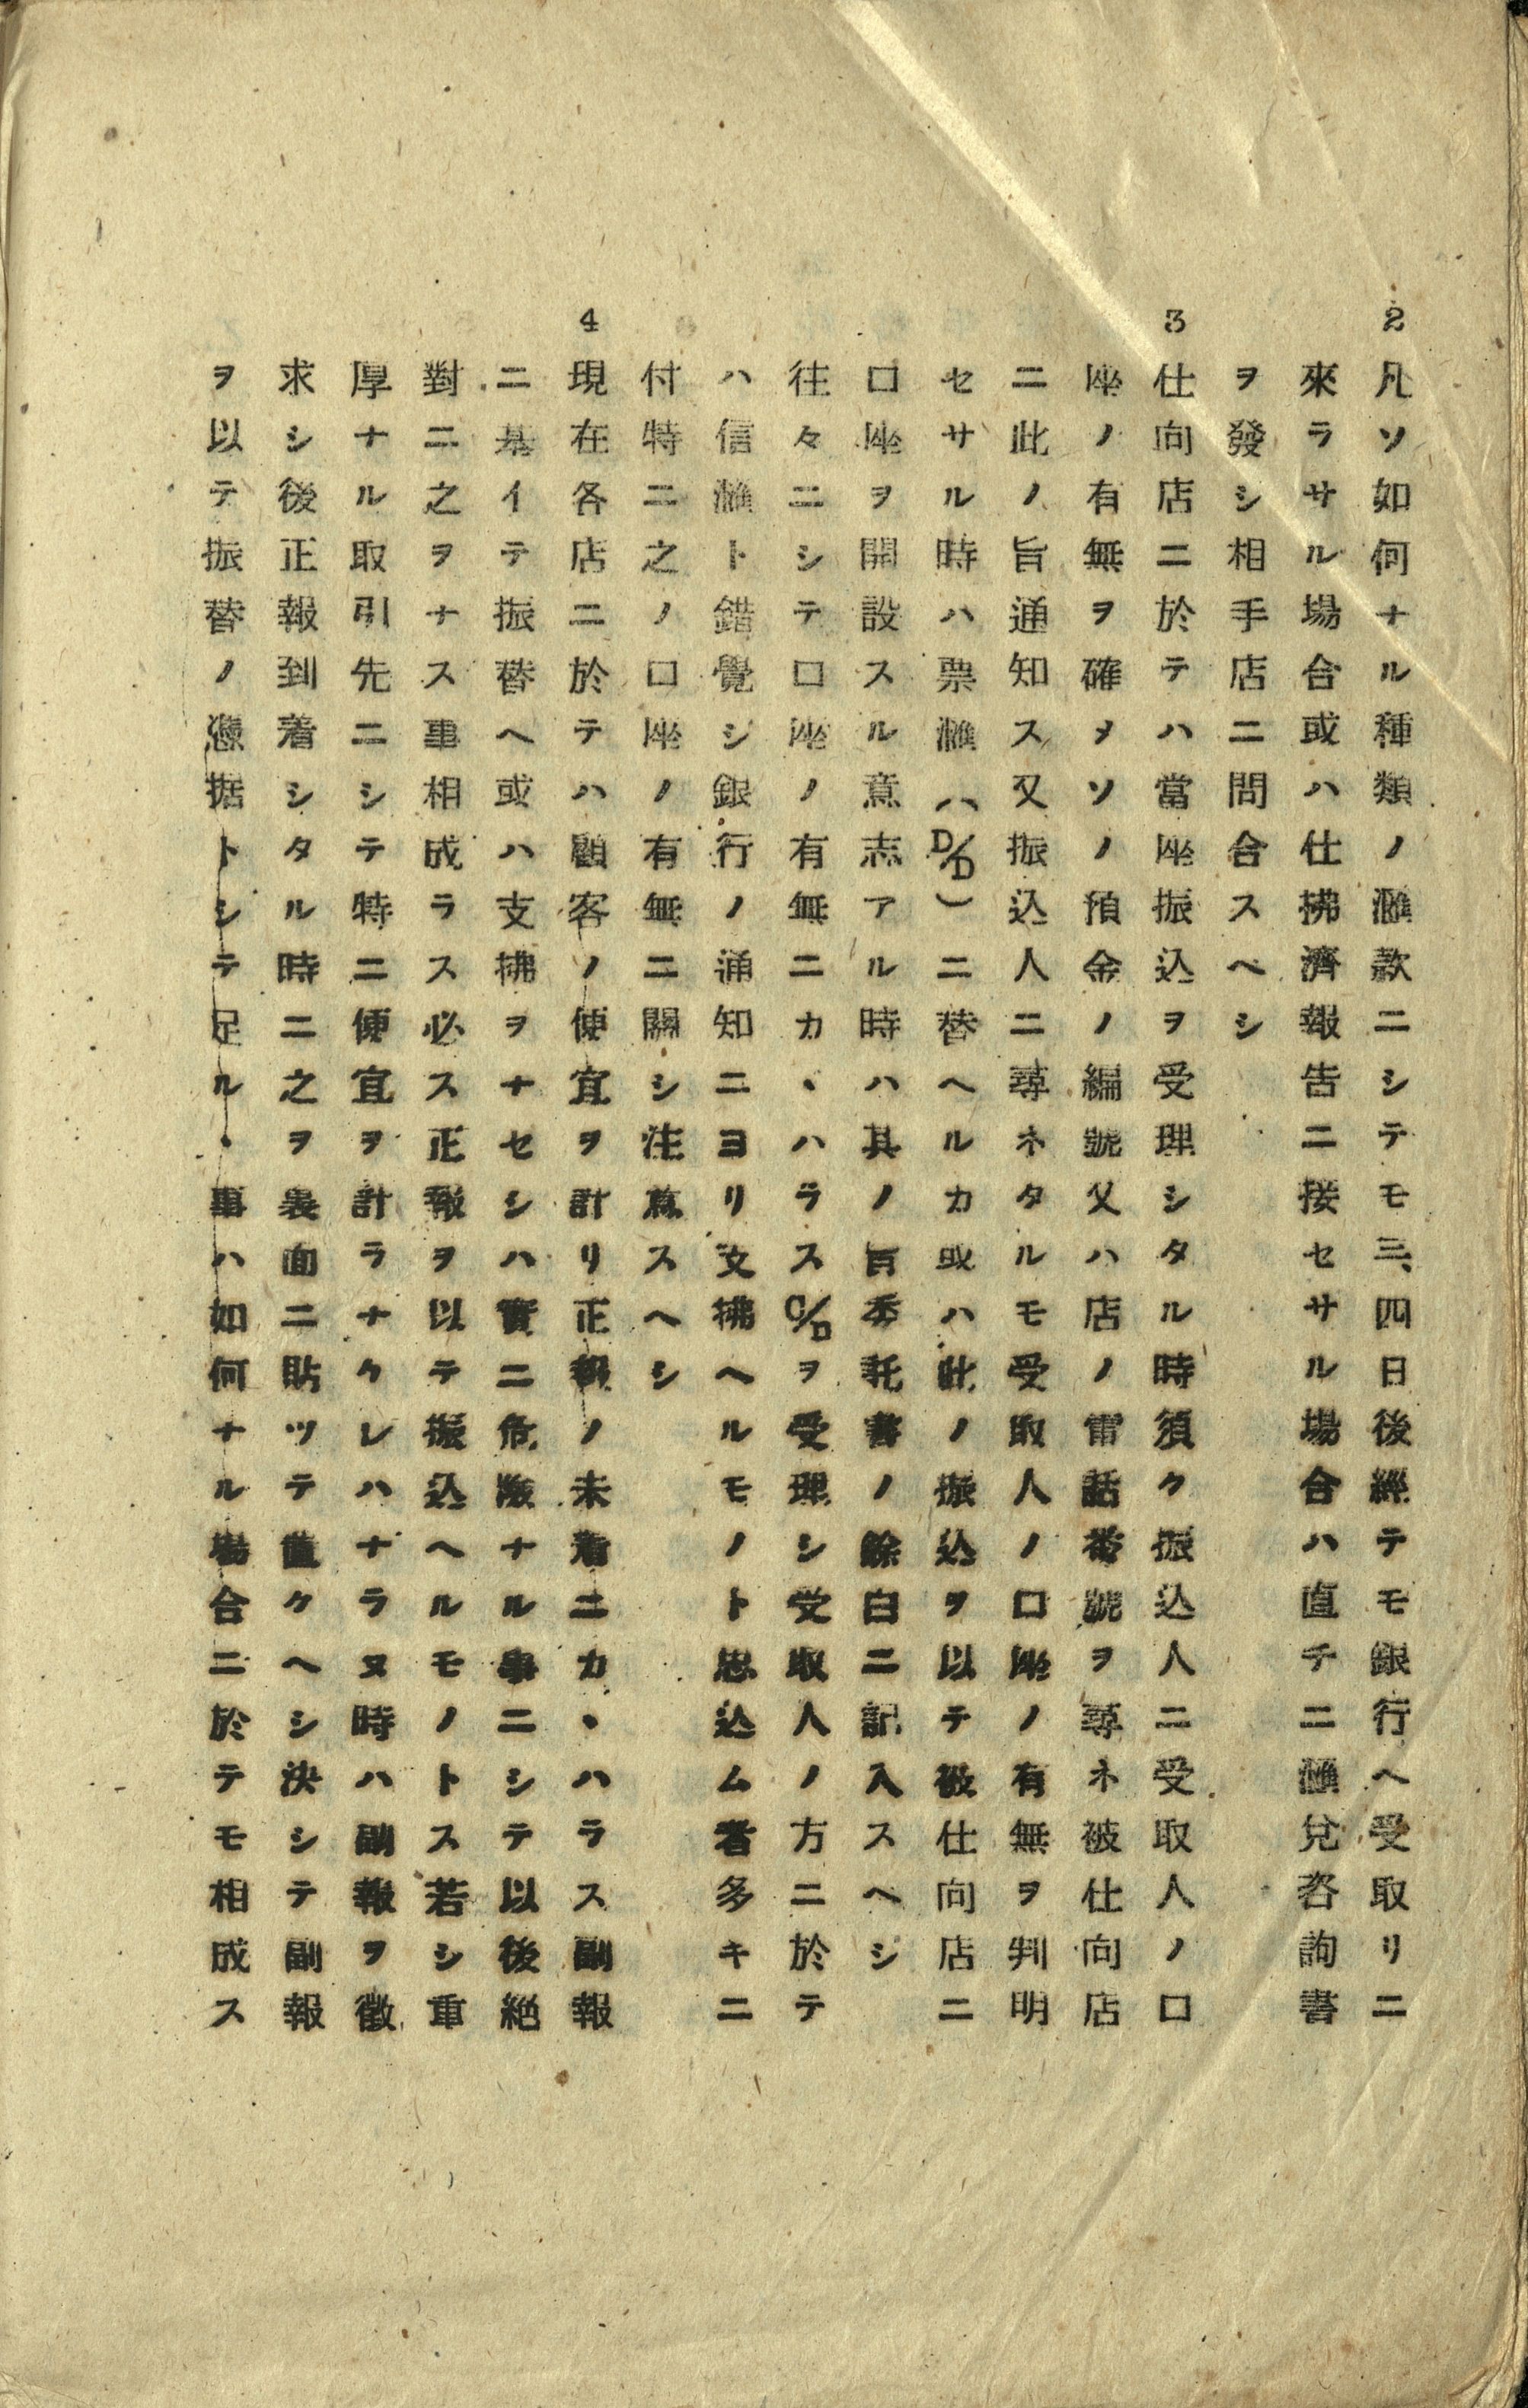 2 凡ソ如何ナル種類ノ滙款ニシテモ三、四日後經テモ銀行ヘ受取リニ
來ラサル場合或ハ仕拂濟報告ニ接セサル場合ハ直チニ滙兌咨詢書
ヲ發シ相手店ニ問合スヘシ
3 仕向店ニ於テハ當座振込ヲ受理シタル時須ク振込人ニ受取人ノ口
座ノ有無ヲ確メソノ預金ノ編號又ハ店ノ電話番號ヲ尋ネ被仕向店
ニ此ノ旨通知ス又振込人ニ尋ネタルモ受取人ノ口座ノ有無ヲ判明
セサル時ハ票滙(D/D)ニ替ヘルカ或ハ此ノ振込ヲ以テ被仕向店ニ
口座ヲ開設スル意志アル時ハ其ノ旨委託書ノ餘白ニ記入スヘシ
往々ニシテ口座ノ有無ニカヽハラスC/Dヲ受理シ受取人ノ方ニ於テ
ハ信滙ト錯覺シ銀行ノ通知ニヨリ支拂ヘルモノト思込ム者多キニ
付特ニ之ノ口座ノ有無ニ關シ注意スヘシ
4 現在各店ニ於テハ顧客ノ便宜ヲ計リ正報ノ未着ニカヽハラス副報
ニ基イテ振替ヘ或ハ支拂ヲナセシハ實ニ危險ナル事ニシテ以後絕
對ニ之ヲナス事相成ラス必ス正報ヲ以テ振込ヘルモノトス若シ重
厚ナル取引先ニシテ特ニ便宜ヲ計ラナクレハナラヌ時ハ副報ヲ徵
求シ後正報到着シタル時ニ之ヲ裏面ニ貼ツテ置クヘシ決シテ副報
ヲ以テ振替ノ憑据トシテ足ル、事ハ如何ナル場合ニ於テモ相成ス